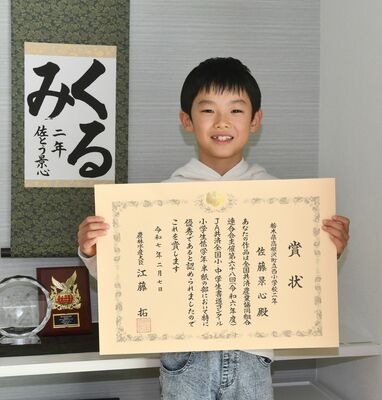 くるみ
二年
佐とう景心
賞状
栃木県高根沢町立西小学校二年
佐藤景心殿
あなたの作品は全国共済農業協同組合
連合会主催第六十八回(令和六年度)
JA共済全国小・中学生書道コンクール
小学生低学年・半紙の部において特に
優秀であると認められましたので
これを賞します
令和七年二月七日
農林水産大臣 江藤拓